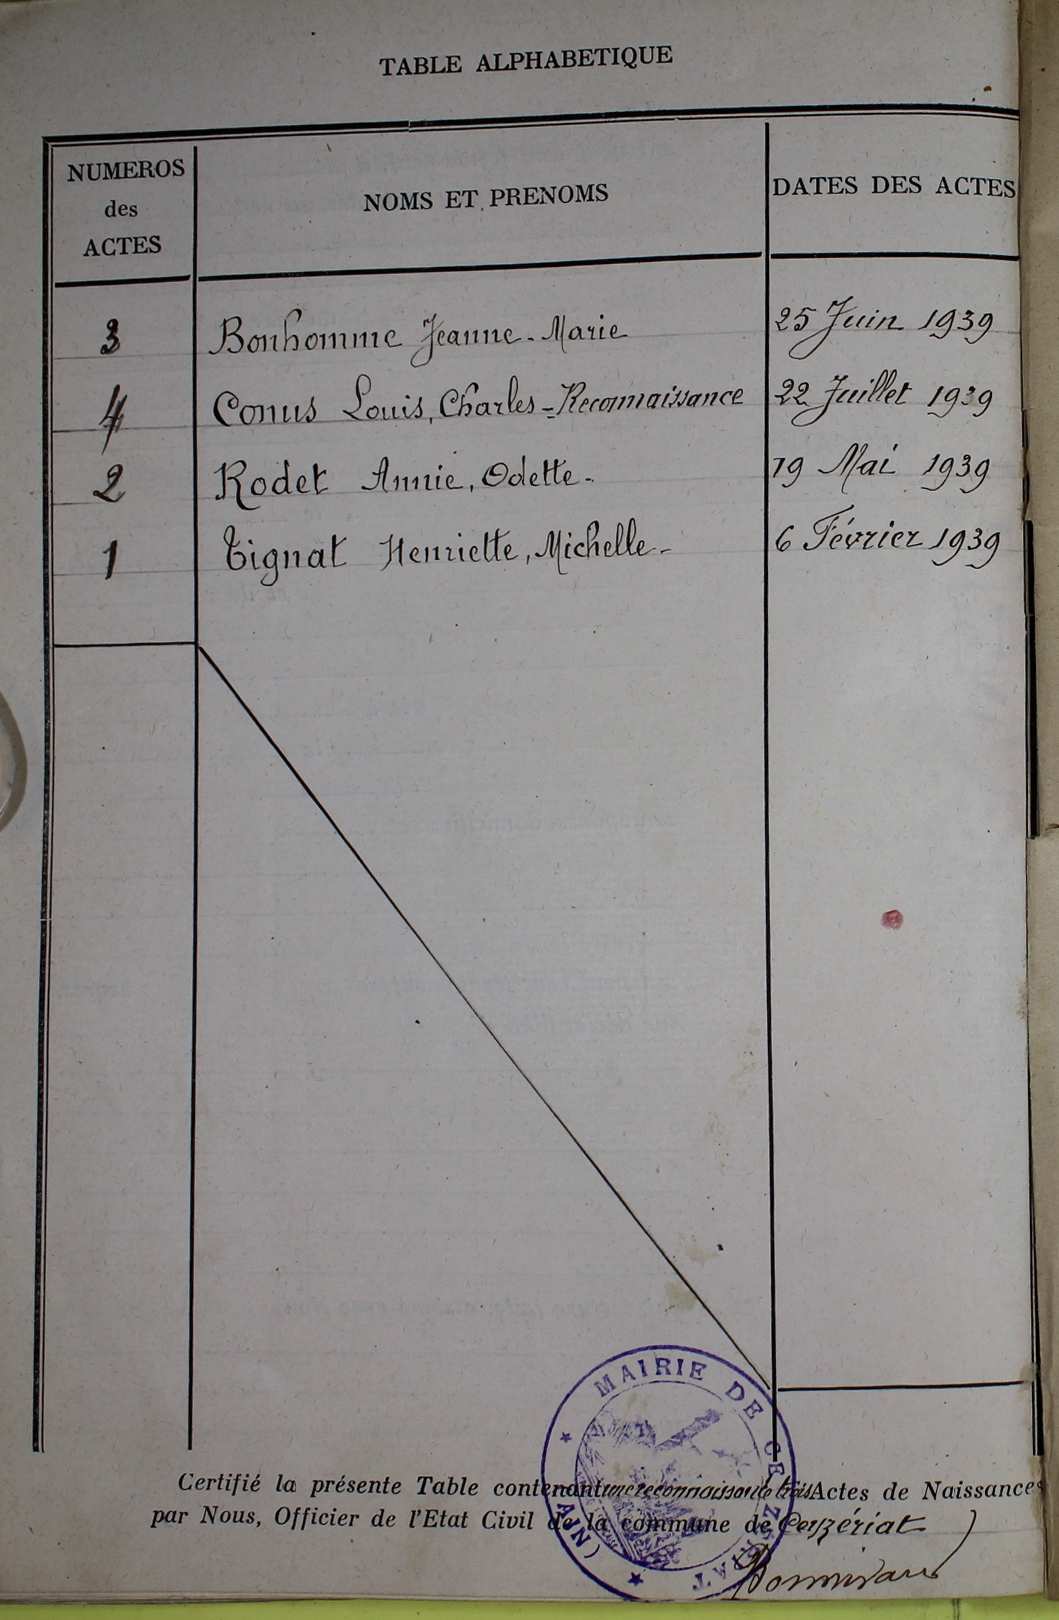 TABLE ALPHABETIQUE
NUMEROS des ACTES
NOMS ET PRENOMS
DATES DES ACTES
3 Bonhomme Jeanne-Marie 25 Juin 1939
4 Conus Louis, Charles - Reconnaissance 22 Juillet 1939
2 Rodet Annie, Odette - 19 Mai 1939
1 Tignat Henriette, Michelle - 6 Février 1939
MAIRIE DE CEYZÉRIAT (AIN)
Certifié la présente Table contenant une reconnaissance trois Actes de Naissances
par Nous, Officier de l'Etat Civil de la commune de Ceyzériat